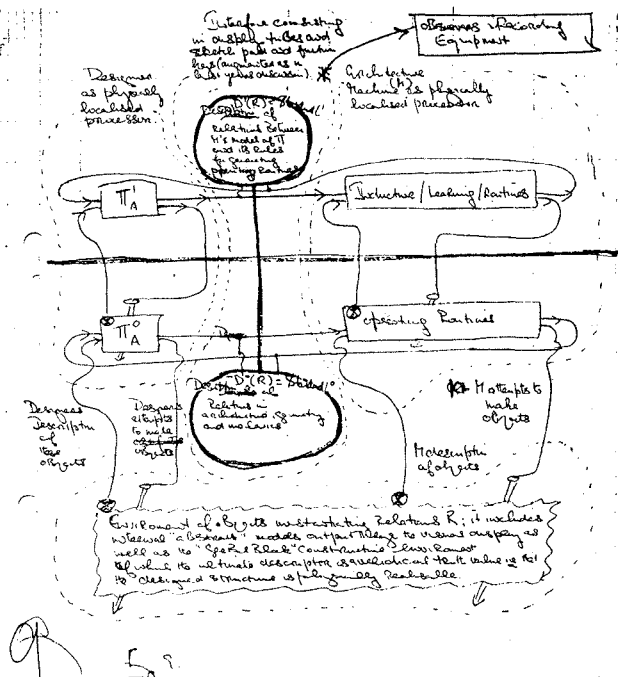 Interface consisting
in display tubes and
sketch pads and function
keys (augmented as in
last years discussion).
Observers Recording
Equipment
Designer
as physically
localised
processor
Architecture
Machine (M) as physically
localised processor
D'(R) =
Description of
Relations Between
M's model of Π
and its Rules
for Generating
Operating Routines
Π'A
Inductive/Learning/Routines
Π°A
Operating Routines
D°(R) =
Description of
Relations in
architectural, Geometry
and mechanics
Designers
Description
of
these
objects
Designers
attempts
to make
objects
M attempts to
make
objects
M description
of objects
Environment of objects instantiating Relations R; it includes
internal "abstract" models output to the visual display as
well as the Block" Construction environment
of which the ultimate descriptor is truth value is that
the designed structure is physically Realisable.